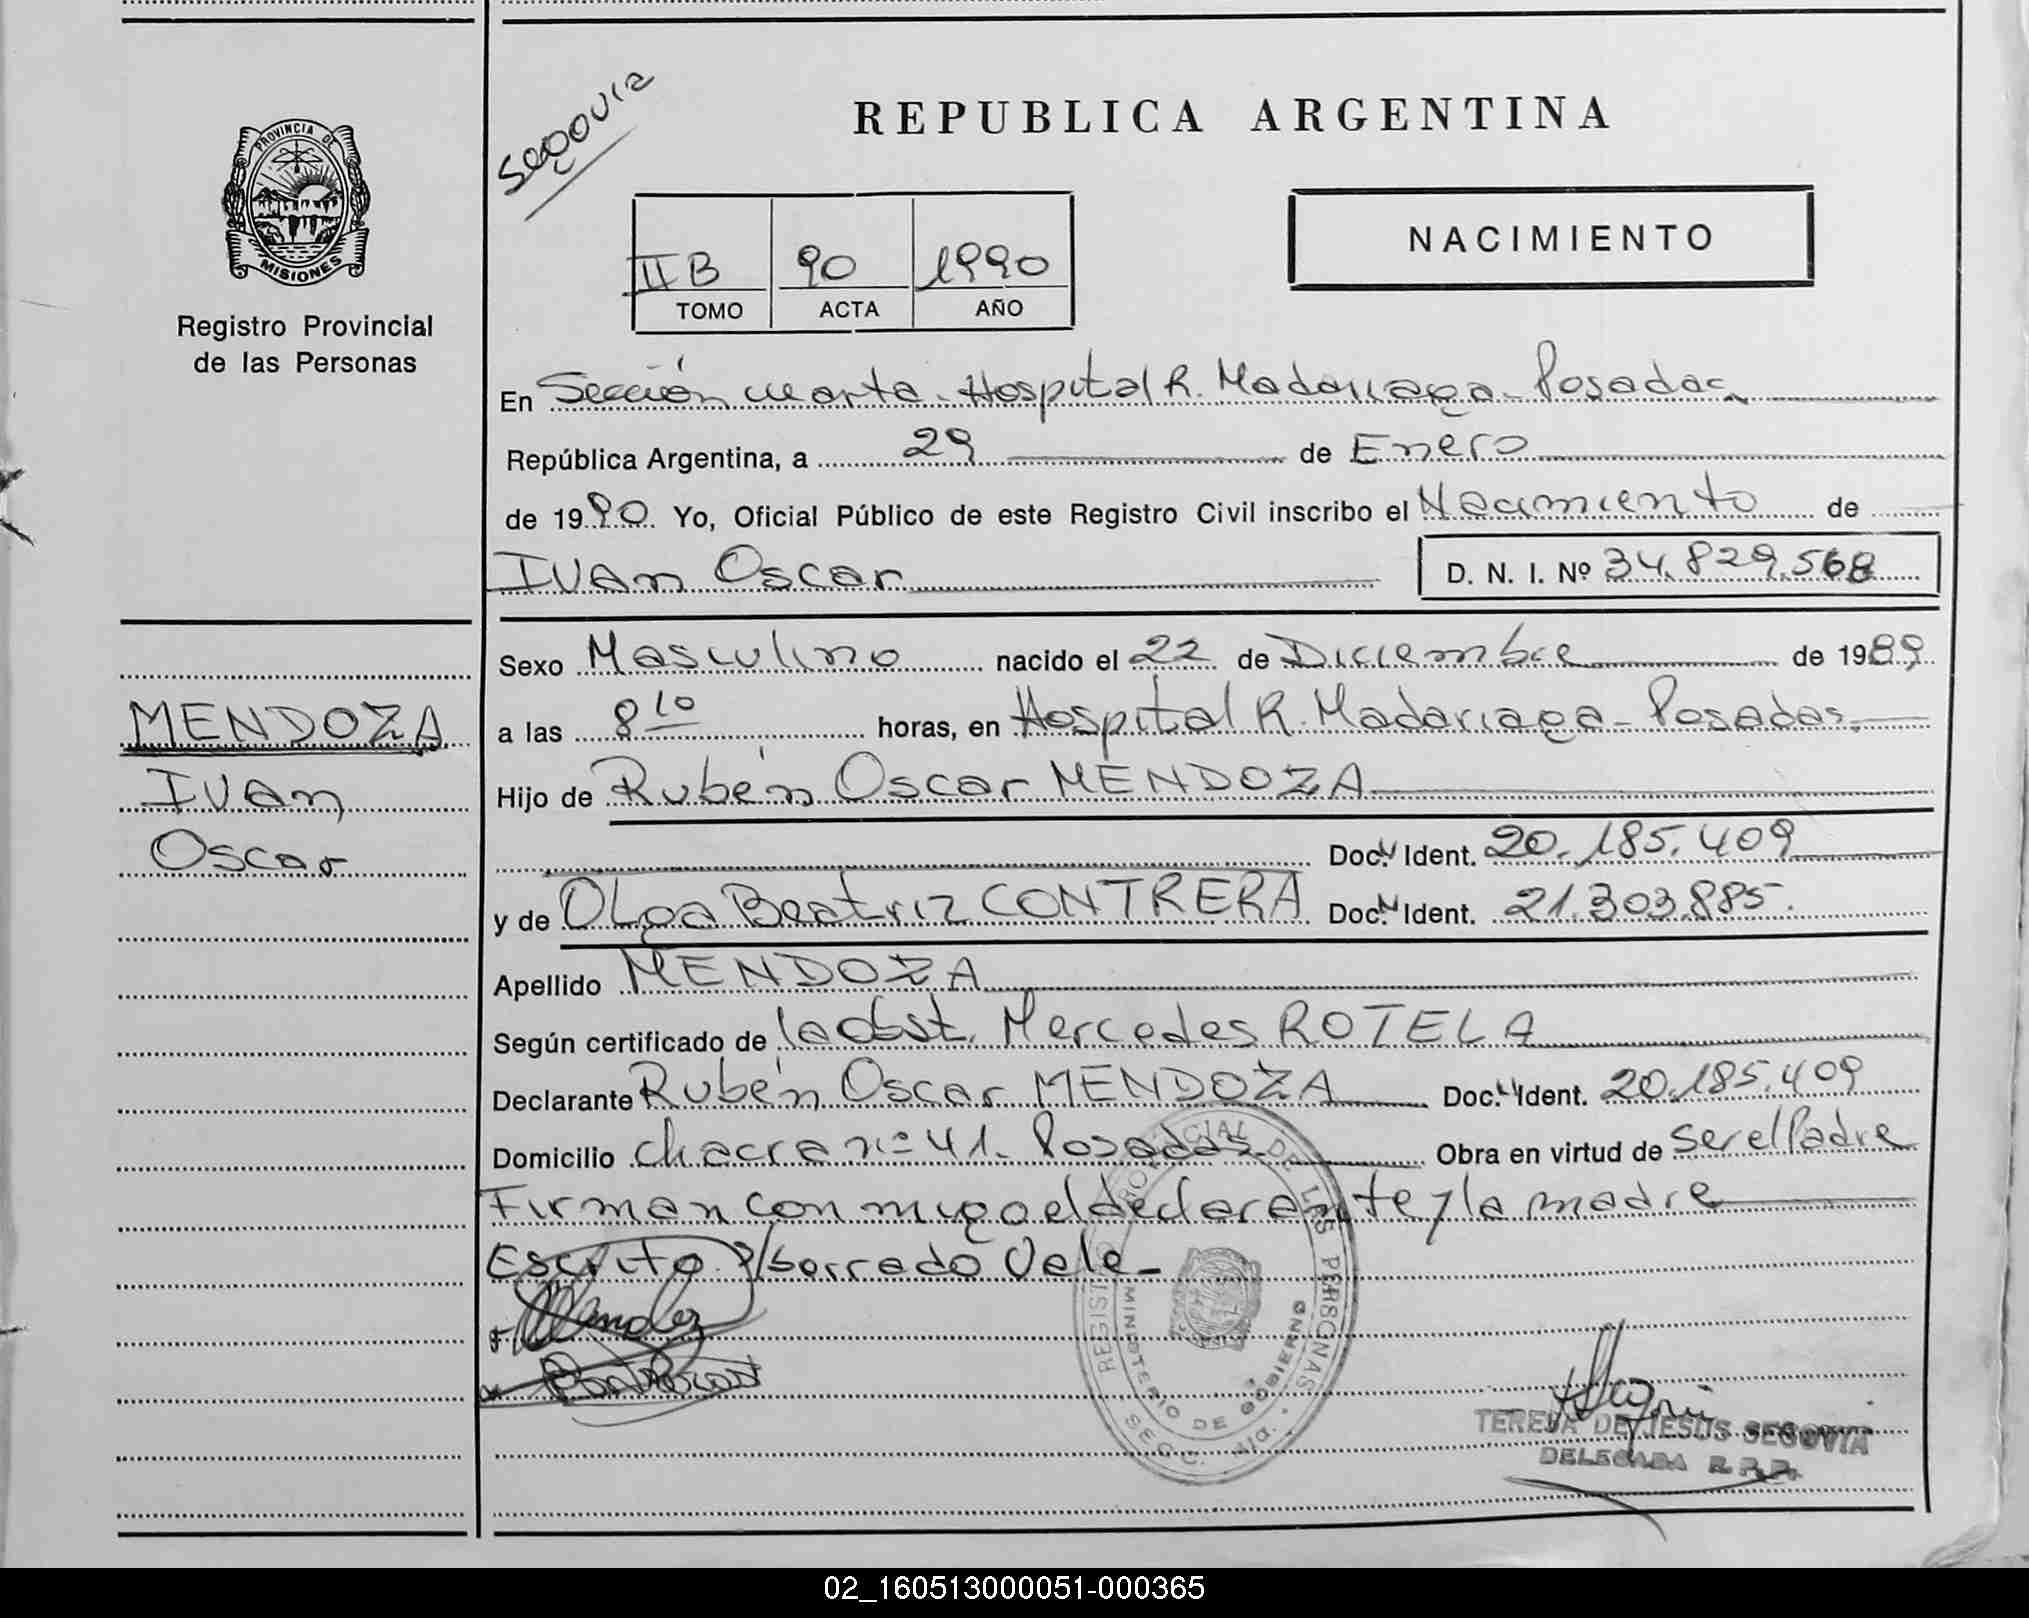 Segovia
REPUBLICA ARGENTINA
PROVINCIA DE
MISIONES
Registro Provincial
de las Personas
NACIMIENTO
II B 90 1990
TOMO ACTA AÑO
En Sección cuarta - Hospital R. Madariaga - Posadas
República Argentina, a 29 de Enero
de 1990 Yo, Oficial Público de este Registro Civil inscribo el Nacimiento de
Ivan Oscar D. N. I. Nº 34.829.568
MENDOZA
Ivan
Oscar
Sexo Masculino nacido el 22 de Diciembre de 1989
a las 8 10 horas, en Hospital R. Madariaga - Posadas.
Hijo de Rubén Oscar MENDOZA
Doc. Ident. 20.185.409
y de Olga Beatriz CONTRERA Doc. Ident. 21.303.885.
Apellido MENDOZA
Según certificado de la obst. Mercedes ROTELA
Declarante Rubén Oscar MENDOZA Doc. Ident. 20.185.409
Domicilio chacra nº 41. Posadas Obra en virtud de ser el Padre
Firman conmigo el declarante y la madre
Escrito s/borrado Vale -
REGISTRO PROVINCIAL DE LAS PERSONAS
MINISTERIO DE GOBIERNO
SECC. 4ta.
TERESA DE JESUS SEGOVIA
DELEGADA R.P.P.
02_160513000051-000365